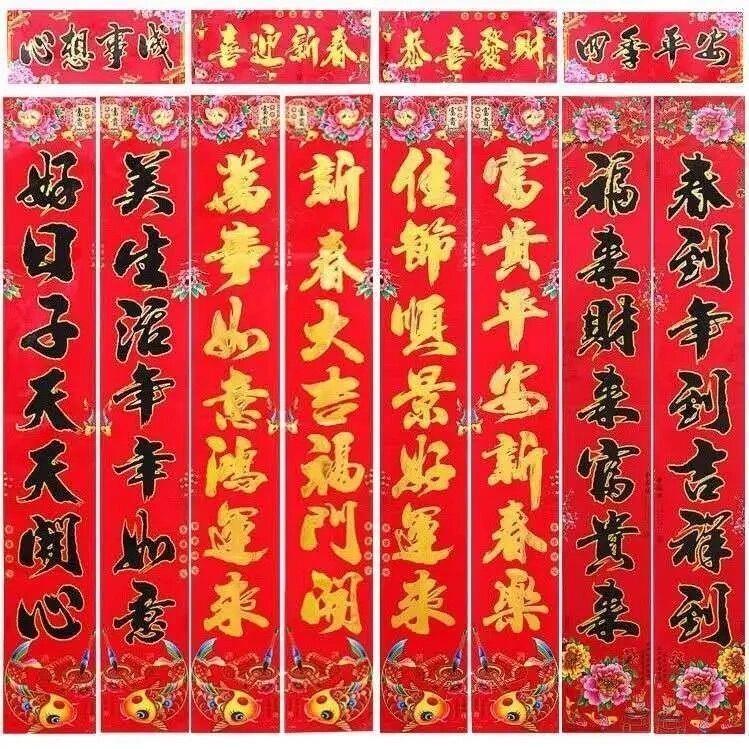 心想事成
喜迎新春
恭喜發財
四季平安
好日子天天開心
美生活年年如意
萬事如意鴻運來
新春大吉福門開
佳節順景好運來
富貴平安新春樂
福來財來富貴來
春到年到吉祥到